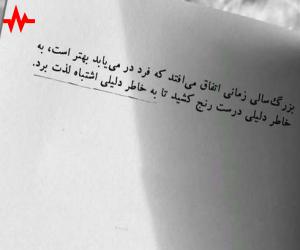 بزرگ‌سالی زمانی اتفاق می‌افتد که فرد در می‌یابد بهتر است، به
خاطر دلیلی درست رنج کشید تا به خاطر دلیلی اشتباه لذت برد.